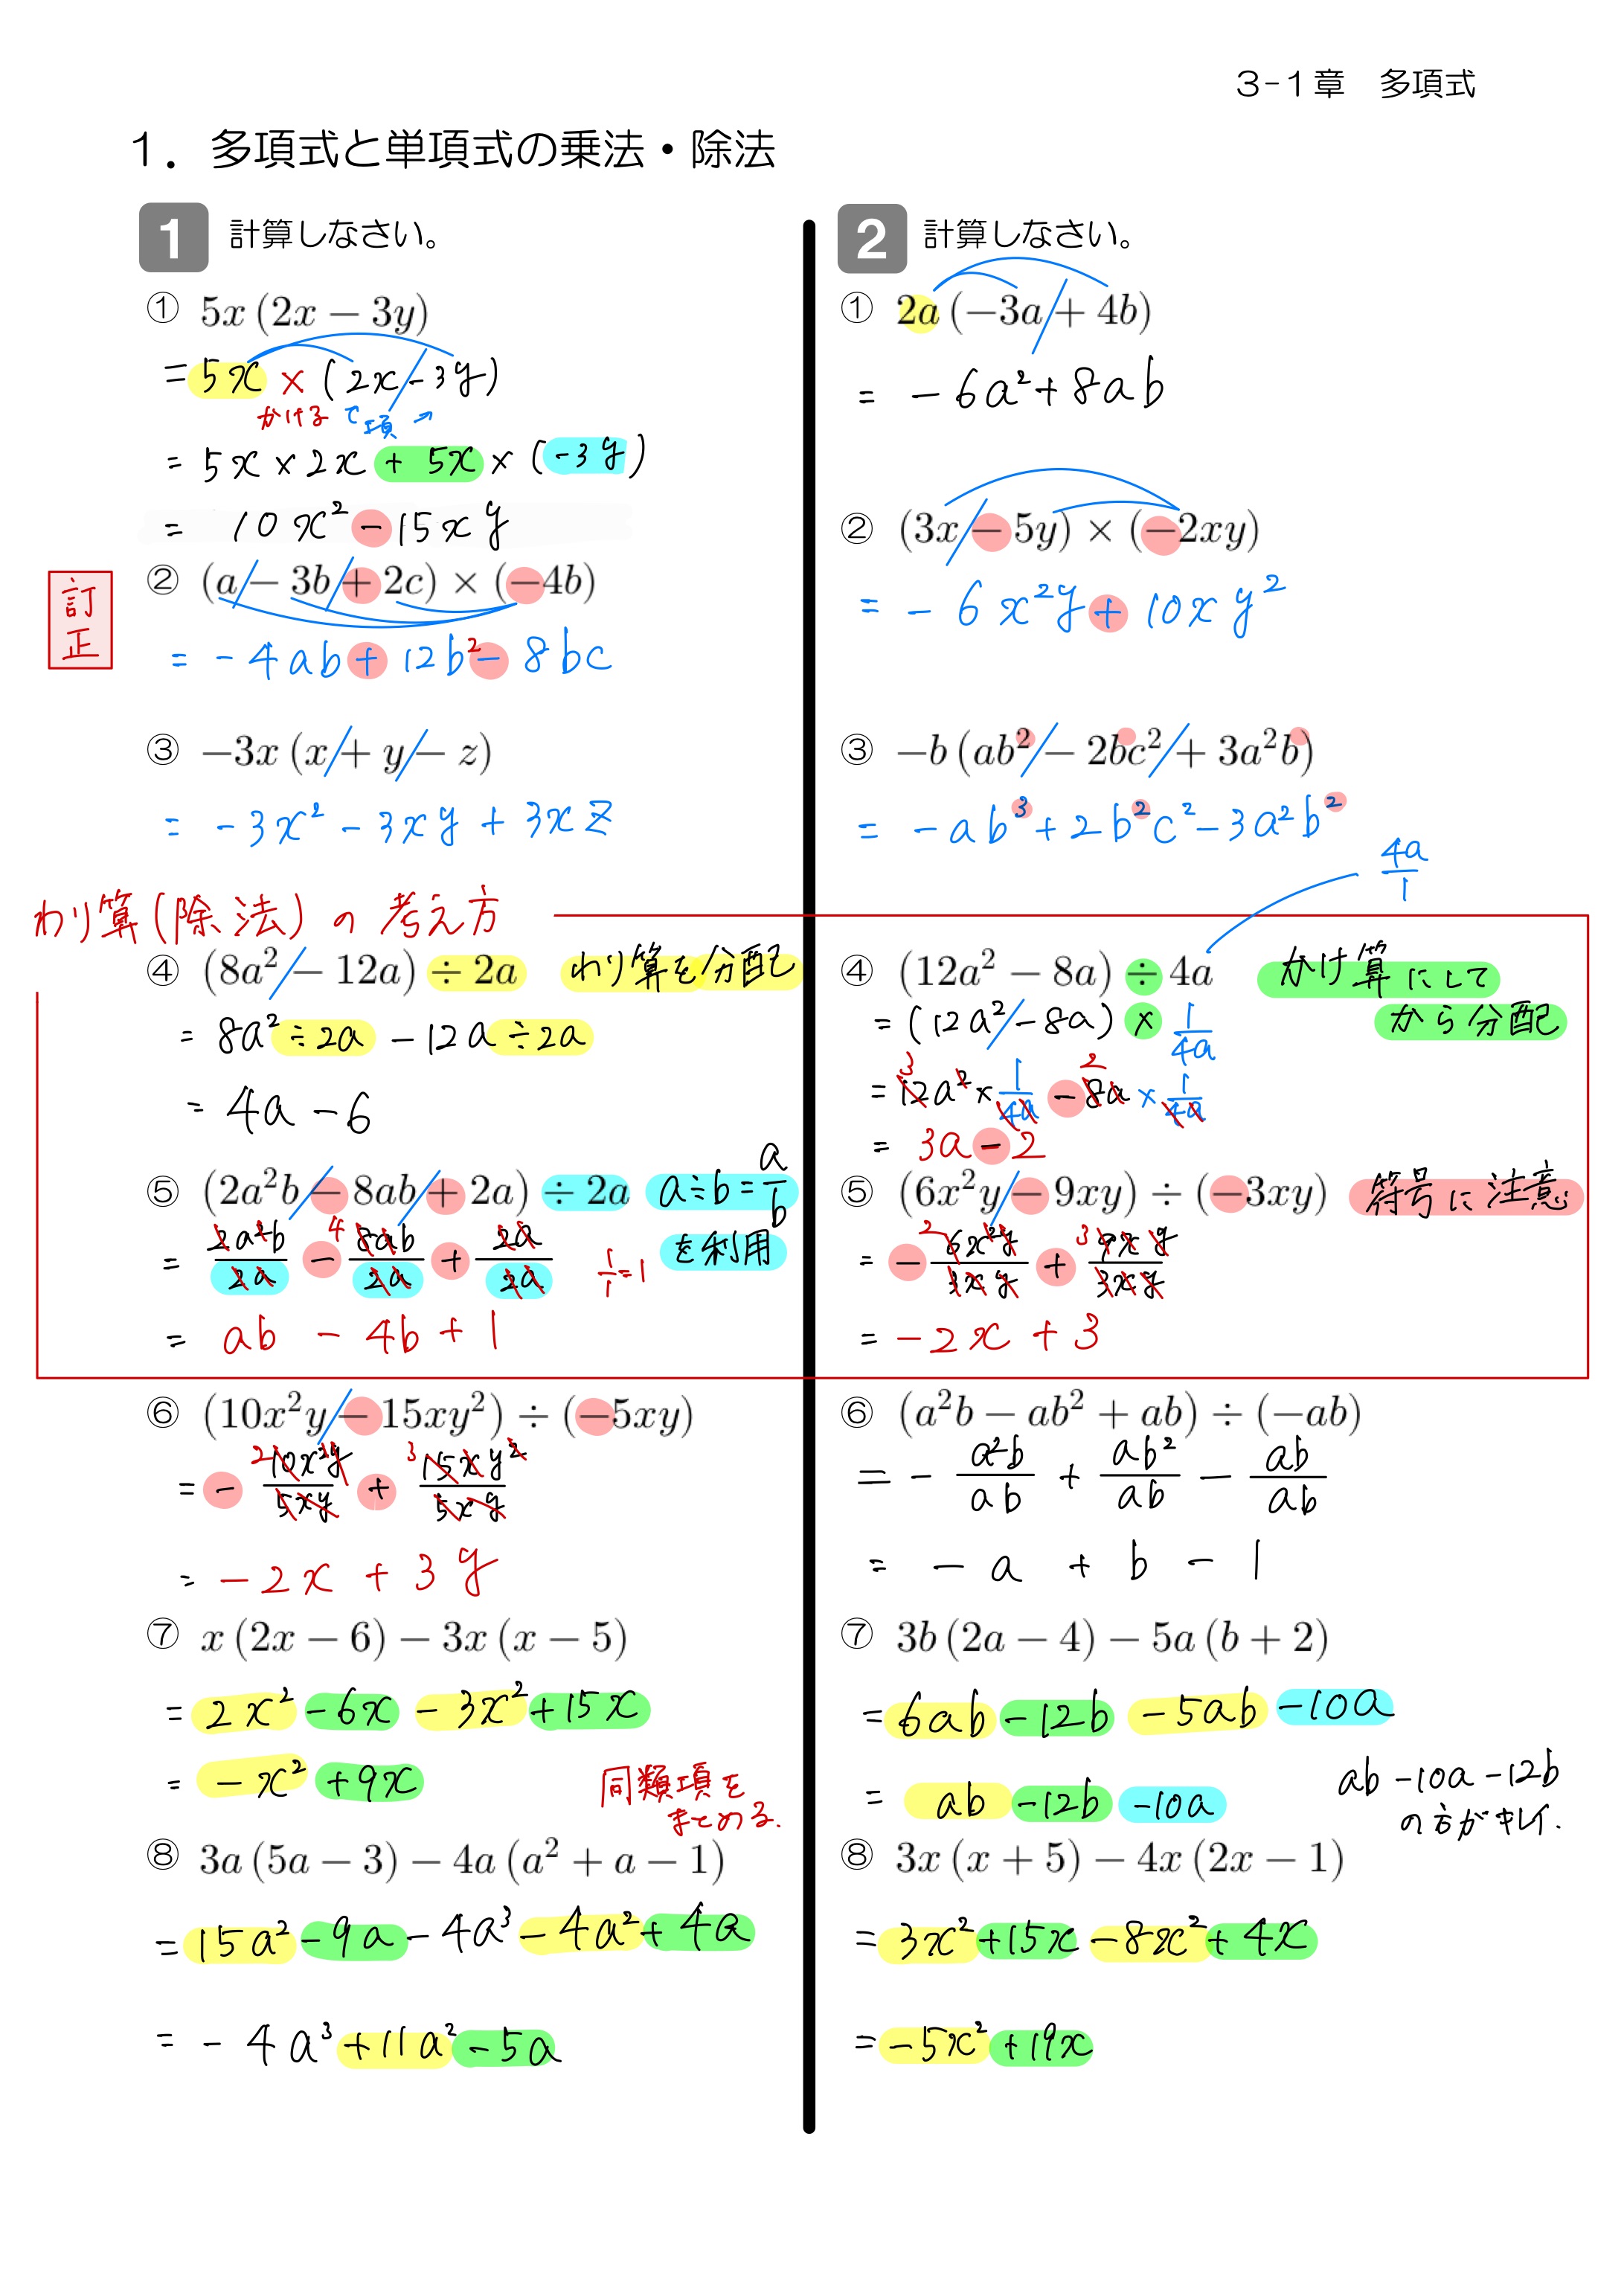 3-1章　多項式
1．多項式と単項式の乗法・除法
1 計算しなさい。
① 5x (2x − 3y)
= 5x × (2x − 3y)
かける て 項 →
= 5x × 2x + 5x × (−3y)
= 10x² − 15xy
訂正
② (a − 3b + 2c) × (−4b)
= −4ab + 12b² − 8bc
③ −3x (x + y − z)
= −3x² − 3xy + 3xz
わり算(除法)の考え方
④ (8a² − 12a) ÷ 2a わり算を分配
= 8a² ÷ 2a − 12a ÷ 2a
= 4a − 6
⑤ (2a²b − 8ab + 2a) ÷ 2a a÷b = a/b を利用
= 2a²b/2a − 8ab/2a + 2a/2a 1/1=1
= ab − 4b + 1
⑥ (10x²y − 15xy²) ÷ (−5xy)
= − 10x²y/5xy + 15xy²/5xy
= −2x + 3y
⑦ x (2x − 6) − 3x (x − 5)
= 2x² − 6x − 3x² + 15x
= −x² + 9x
同類項を
まとめる.
⑧ 3a (5a − 3) − 4a (a² + a − 1)
= 15a² − 9a − 4a³ − 4a² + 4a
= −4a³ + 11a² − 5a
2 計算しなさい。
① 2a (−3a + 4b)
= −6a² + 8ab
② (3x − 5y) × (−2xy)
= −6x²y + 10xy²
③ −b (ab² − 2bc² + 3a²b)
= −ab³ + 2b²c² − 3a²b²
4a/1
④ (12a² − 8a) ÷ 4a かけ算にして
から分配
= (12a² − 8a) × 1/4a
= 12a² × 1/4a − 8a × 1/4a
3 2
= 3a − 2
⑤ (6x²y − 9xy) ÷ (−3xy) 符号に注意
= − 6x²y/3xy + 9xy/3xy
= −2x + 3
⑥ (a²b − ab² + ab) ÷ (−ab)
= − a²b/ab + ab²/ab − ab/ab
= −a + b − 1
⑦ 3b (2a − 4) − 5a (b + 2)
= 6ab − 12b − 5ab − 10a
= ab − 12b − 10a
ab − 10a − 12b
の方がキレイ.
⑧ 3x (x + 5) − 4x (2x − 1)
= 3x² + 15x − 8x² + 4x
= −5x² + 19x